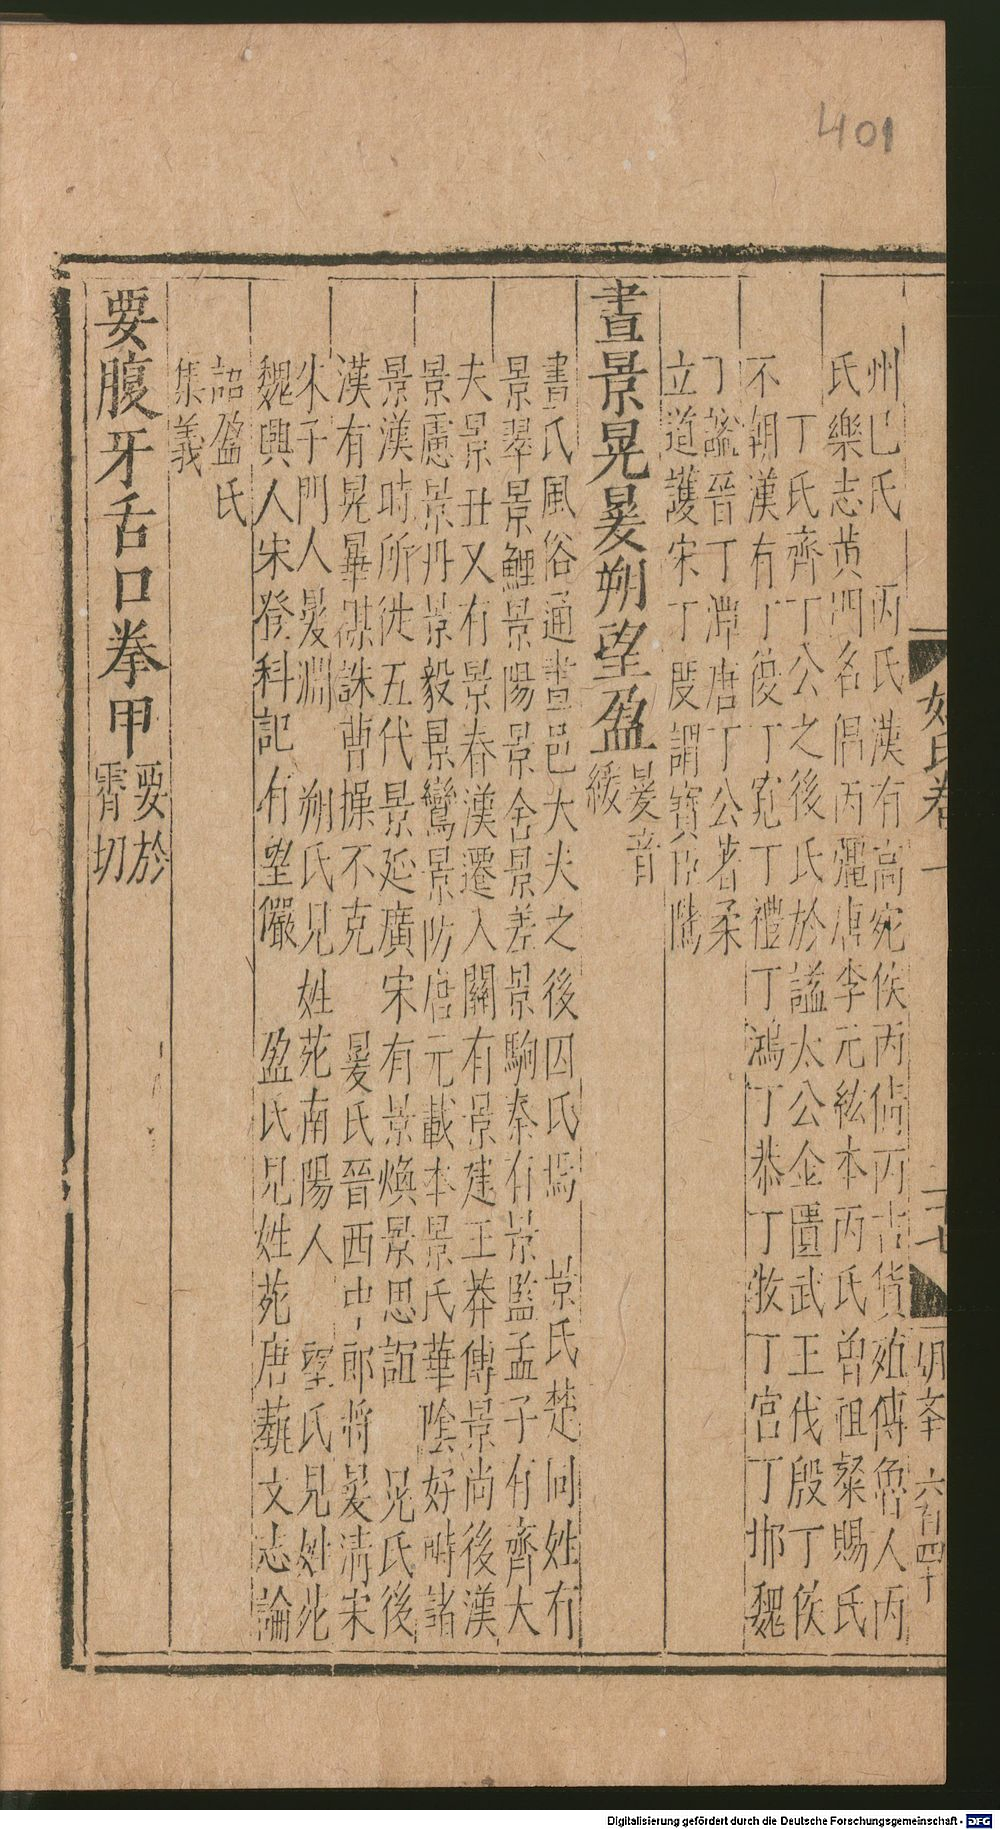 401
州巳氏　丙氏漢有高宛侯丙倩丙吉貨殖傳魯人丙
氏樂志黄門名倡丙彊唐李元紘本丙氏曾祖粲賜氏
丁氏齊丁公之後氏於謚太公金匱武王伐殷丁侯
不朝漢有丁復丁寛丁禮丁鴻丁恭丁牧丁宫丁邯魏
丁謐晉丁潭唐丁公著柔
立道護宋丁度謂寳臣隲
晝景晃晸朔望盈
音
綏
晝氏風俗通晝邑大夫之後因氏焉　景氏楚同姓有
景翠景鯉景陽景舍景差景駒秦有景監孟子有齊大
夫景丑又有景春漢遷入關有景建王莽傳景尚後漢
景慮景丹景毅景鸞景防唐元載本景氏華隂好畤諸
景漢時所徙五代景延廣宋有景煥景思誼　晃氏後
漢有晃華謀誅曹操不克　氏晉西中郎將清宋
朱子門人淵　朔氏見姓苑南陽人　望氏見姓苑
魏興人宋登科記有望儼　盈氏見姓苑唐藝文志論
語盈氏
集義
要腹牙舌口拳甲
要於
霄切
姓氏卷一
二十七
六百四十
Digitalisierung gefördert durch die Deutsche Forschungsgemeinschaft - DFG